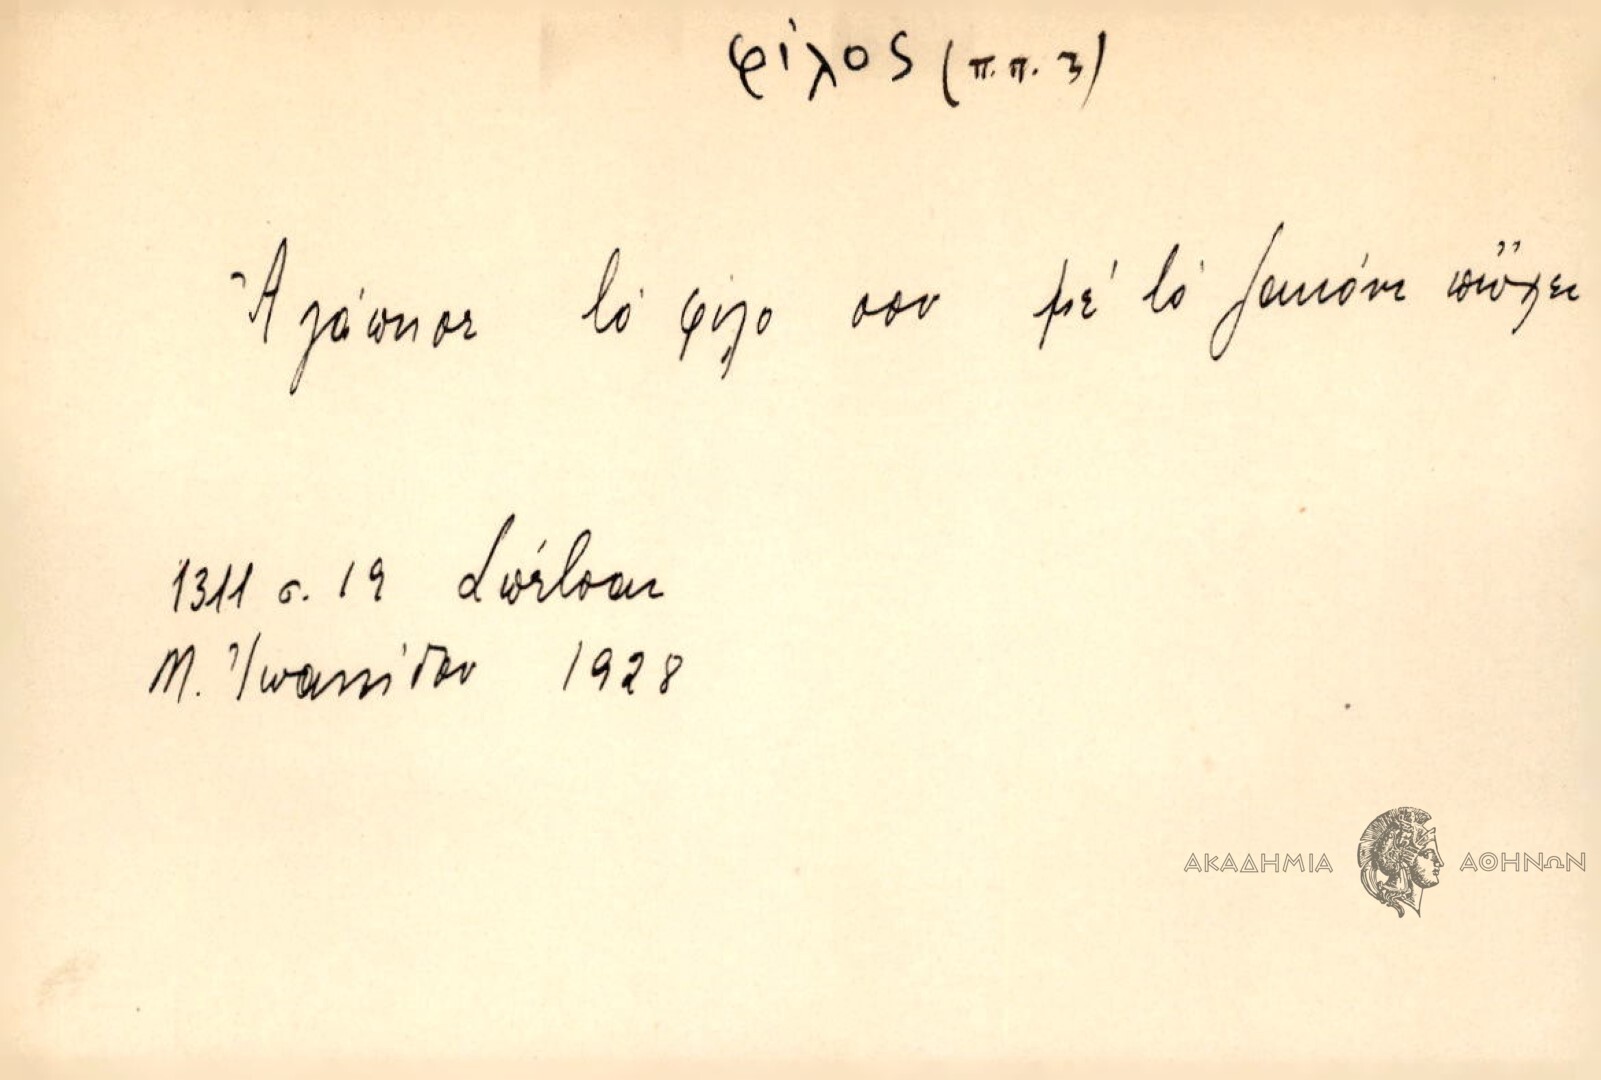 φίλος (π.π. 3)
Ἀγάπησε τὸ φίλο σου μὲ τὸ ζακόνι πὤχει
1311 σ. 19 Σπέτσαι
Μ. Ἰωαννίδου 1928
ΑΚΑΔΗΜΙΑ ΑΘΗΝΩΝ